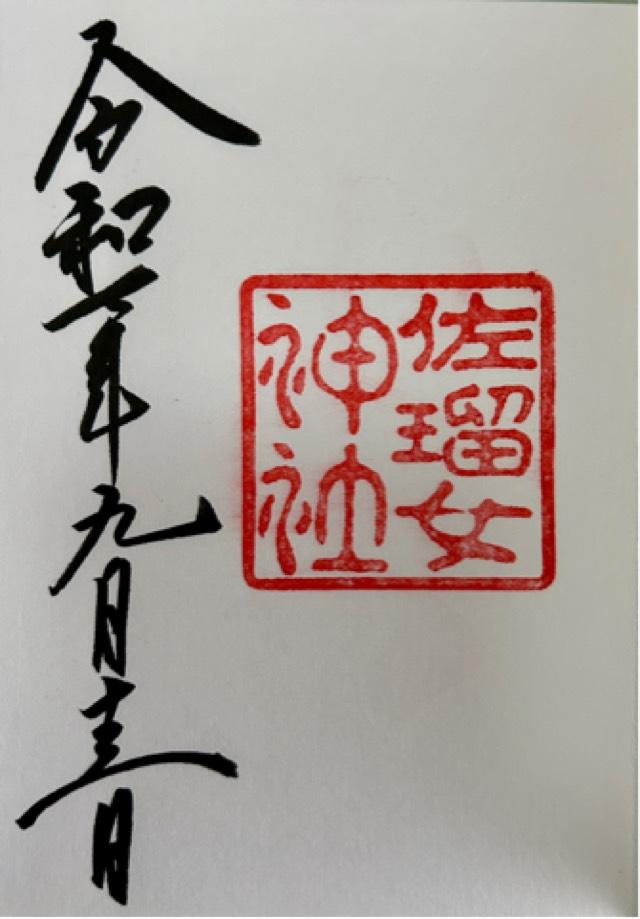 佐瑠女
神社
令和七年九月十三日